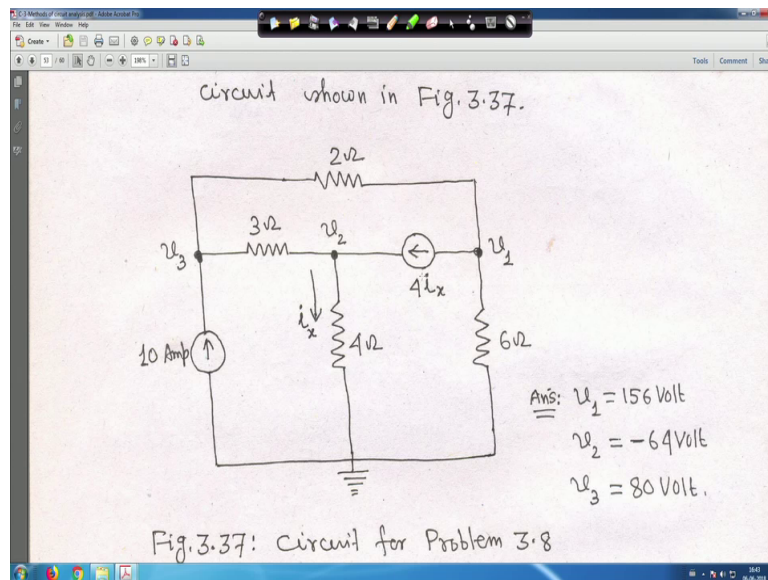 C-3-Methods of circuit analysis.pdf - Adobe Acrobat Pro
File Edit View Window Help
Create
53 / 60
198%
Tools Comment
circuit shown in Fig. 3.37.
2Ω
3Ω
v2
v3
v1
4ix
ix
4Ω
6Ω
10 Amp
Ans: v1 = 156 Volt
v2 = -64 Volt
v3 = 80 Volt.
Fig. 3.37: Circuit for Problem 3.8
16:43